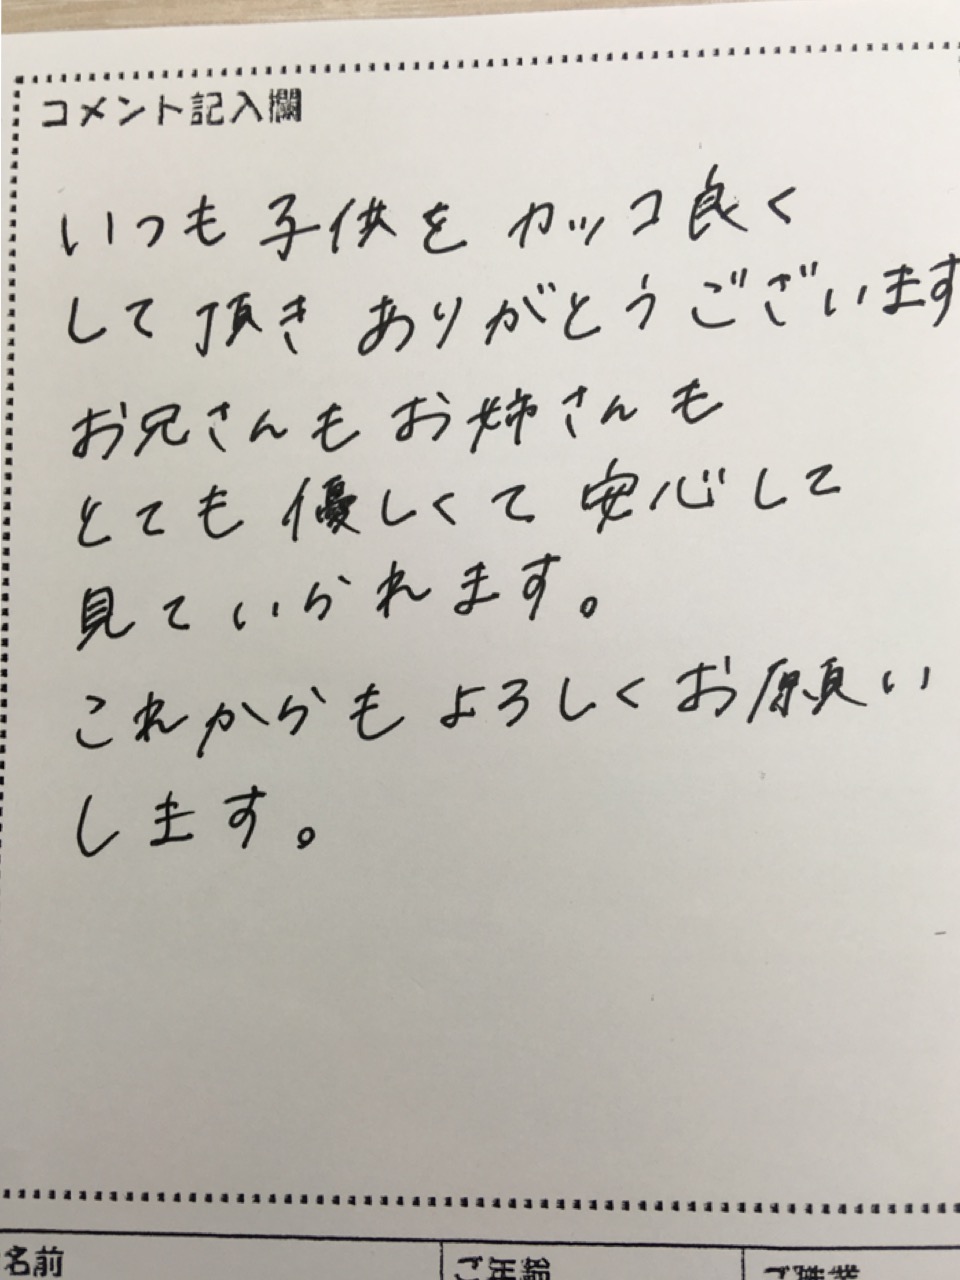 コメント記入欄
いつも子供をカッコ良く
して頂きありがとうございます
お兄さんもお姉さんも
とても優しくて安心して
見ていられます。
これからもよろしくお願い
します。
名前
ご年齢
ご職業